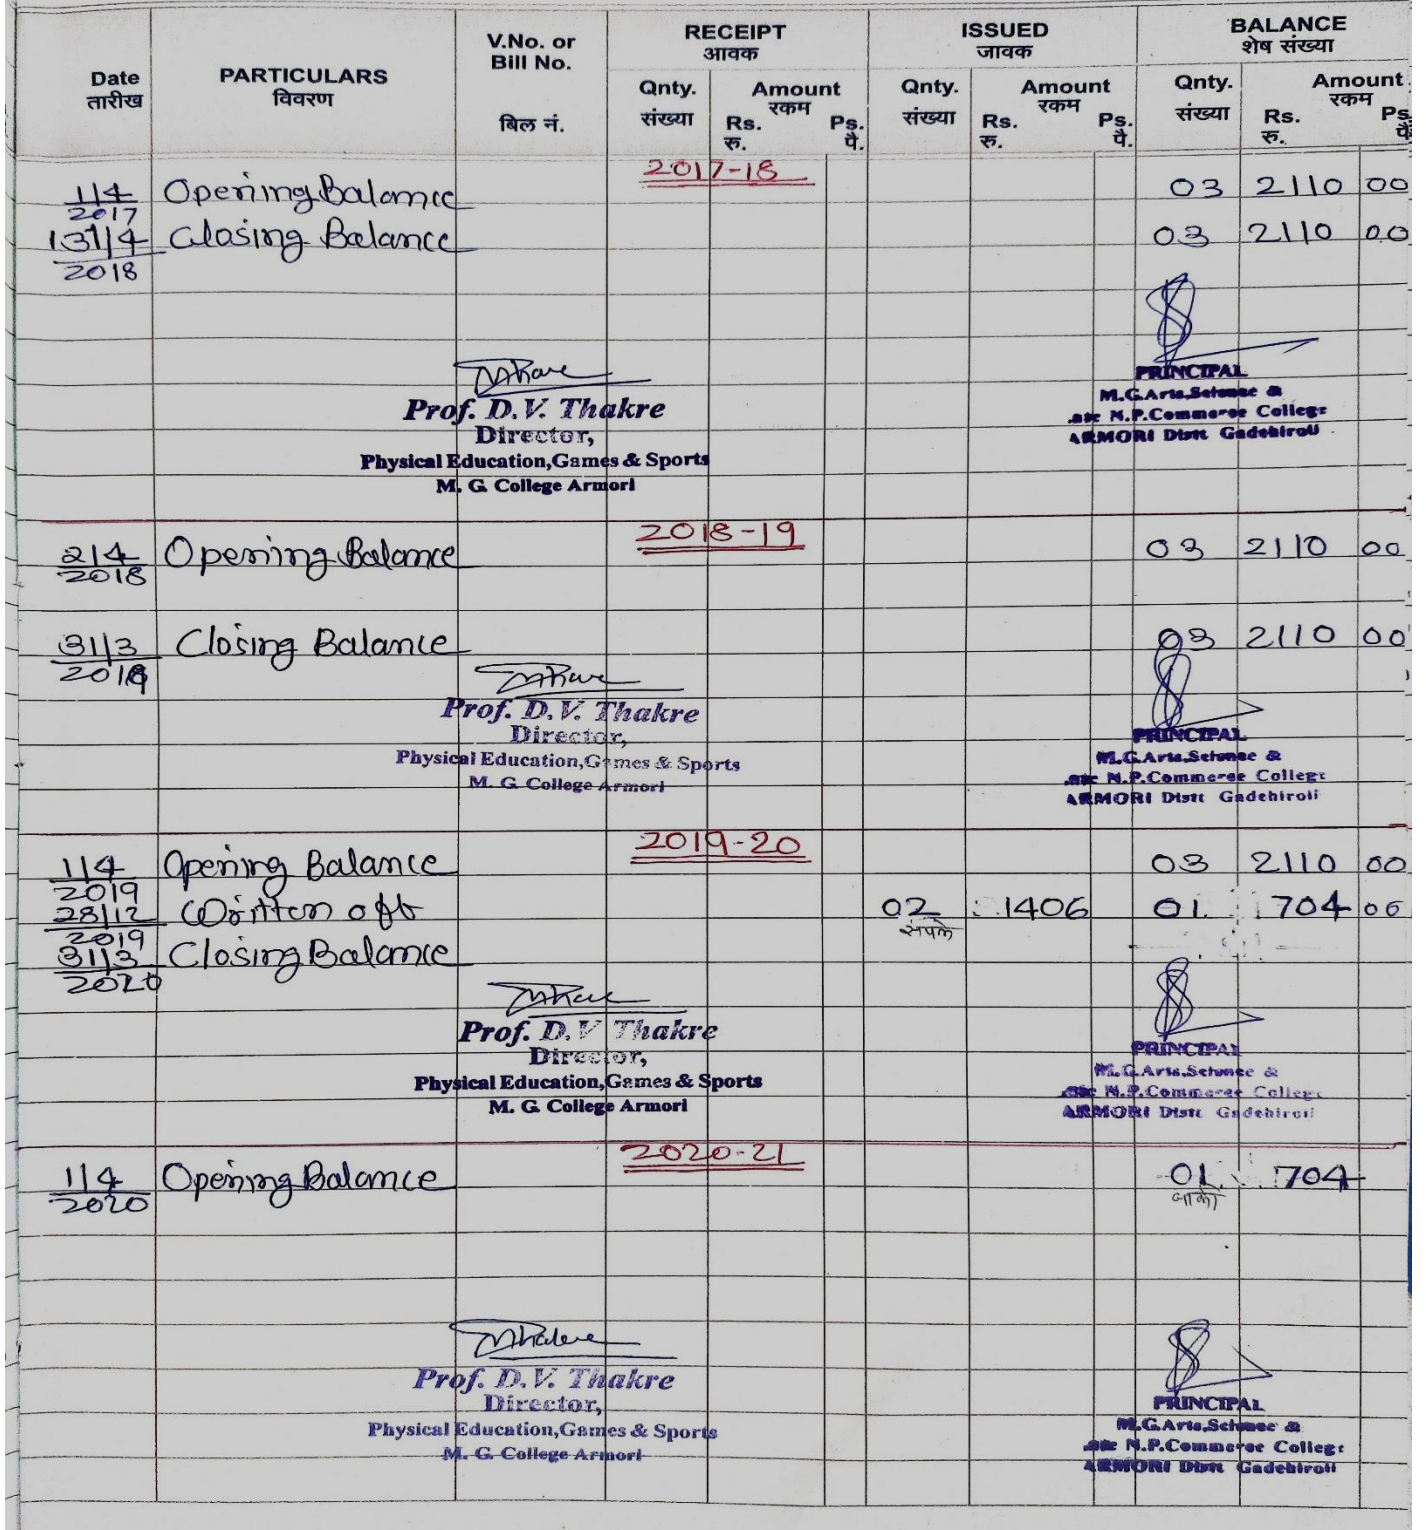 Date
तारीख
PARTICULARS
विवरण
V.No. or
Bill No.
बिल नं.
RECEIPT
आवक
ISSUED
जावक
BALANCE
शेष संख्या
Qnty. Amount Qnty. Amount Qnty. Amount
संख्या रकम संख्या रकम संख्या रकम
Rs. Ps. Rs. Ps. Rs. Ps.
रु. पै. रु. पै. रु. पै.
2017-18
1/4 Opening Balance 03 2110 00
2017
31/4 Closing Balance 03 2110 00
2018
Prof. D.V. Thakre
Director,
Physical Education,Games & Sports
M. G. College Armori
PRINCIPAL
M.G.Arts,Science &
N.P.Commerce College
ARMORI Distt Gadchiroli
2018-19
2/4 Opening Balance 03 2110 00
2018
31/3 Closing Balance 03 2110 00
2019
Prof. D.V. Thakre
Director,
Physical Education,Games & Sports
M. G. College Armori
PRINCIPAL
M.G.Arts,Science &
N.P.Commerce College
ARMORI Distt Gadchiroli
2019-20
1/4 Opening Balance 03 2110 00
2019
28/12 Written off 02 1406 01 704 00
2019
31/3 Closing Balance
2020
Prof. D.V Thakre
Director,
Physical Education,Games & Sports
M. G. College Armori
PRINCIPAL
M.G.Arts,Science &
N.P.Commerce College
ARMORI Distt Gadchiroli
2020-21
1/4 Opening Balance 01 704
2020 बाकी
Prof. D.V. Thakre
Director,
Physical Education,Games & Sports
M. G. College Armori
PRINCIPAL
M.G.Arts,Science &
N.P.Commerce College
ARMORI Distt Gadchiroli